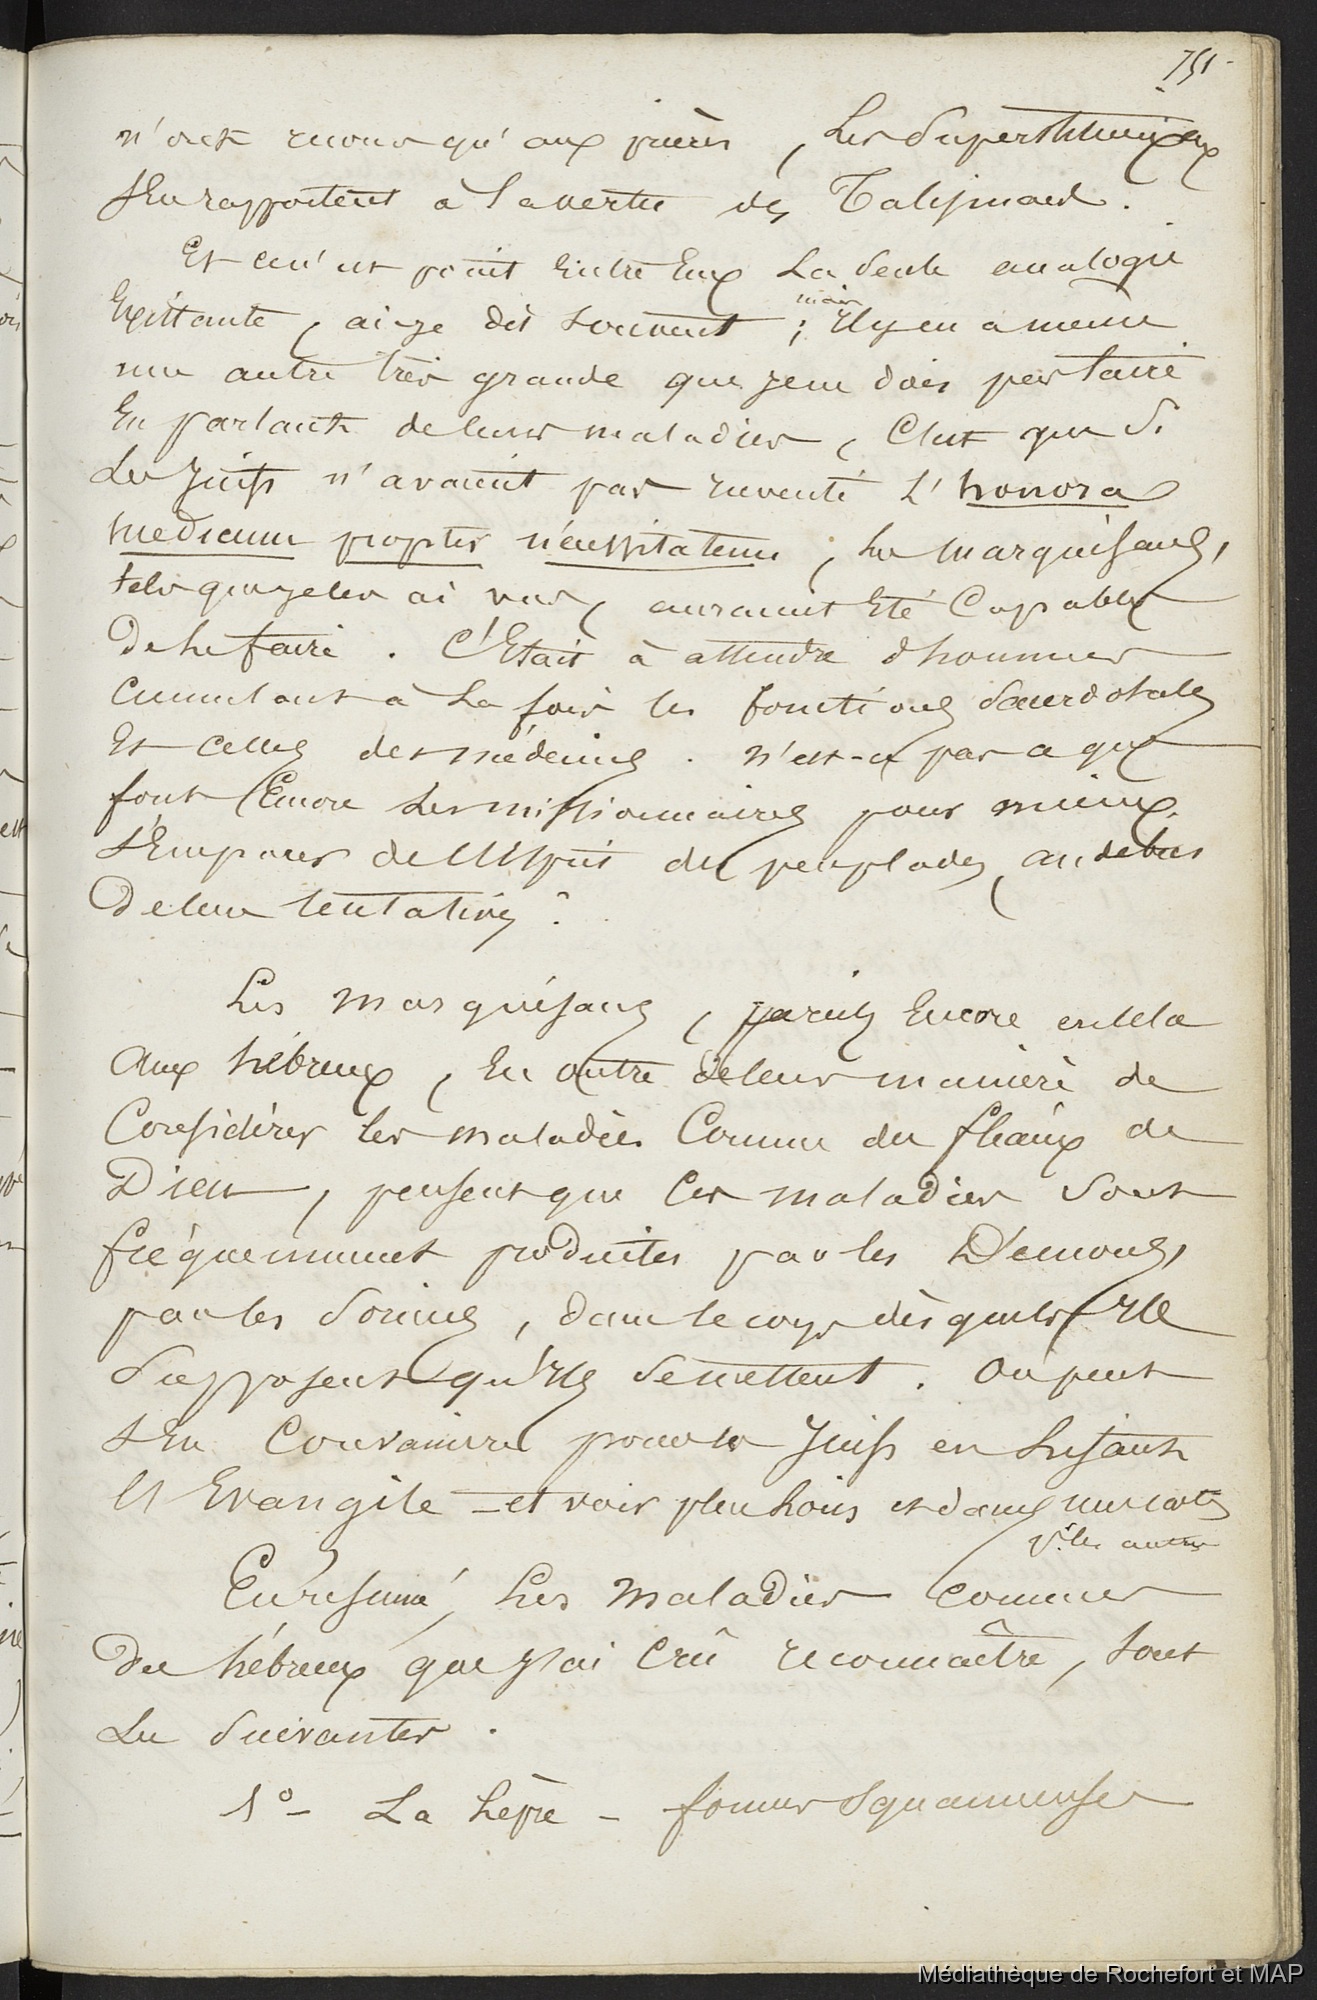 751-
n'ont recours qu'aux prières, les superstitieux
s'en rapportent à la vertu des Talismans.
Et ce n'est point entre eux la seule analogie
existante, ai-je dit souvent ; mais il y en a même
une autre très grande que je ne dois pas taire
en parlant de leurs maladies, c'est que si
les juifs n'avaient pas inventé l'honora
medicum propter nécessitatem, les marquisans,
tels que je les ai vus, auraient été capables
de le faire. C'était à attendre d'hommes
cumulant à la fois les fonctions sacerdotales
et celles des médecins. n'est-ce pas ce que
font encore les missionnaires pour mieux
s'emparer de l'esprit des peuplades, au début
de leurs tentatives ?
Les marquisans, pareils encore en cela
aux hébreux, en outre de leur manière de
considérer les maladies comme des fléaux de
Dieu, pensent que les maladies sont
fréquemment produites par les Démons,
par les sorciers, dans le corps desquels ils
supposent qu'ils se mettent. On peut
s'en convaincre pour les juifs en lisant
l'Evangile - et voir plus loin et dans mes cartes
v. les autres
En résumé, les maladies communes
des hébreux que j'ai crû reconnaître, sont
les suivantes.
1° - La lèpre - formes squammeuses
Médiathèque de Rochefort et MAP